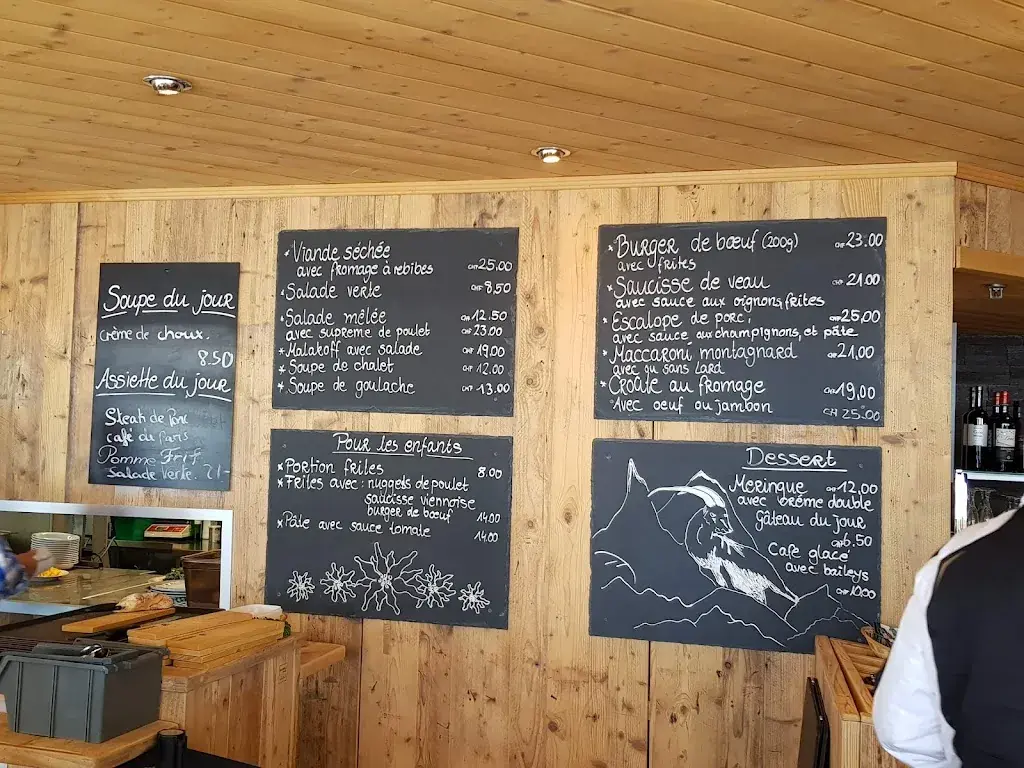 Soupe du jour
crème de choux.
8.50
Assiette du jour
Steak de Porc
café de Paris
Pomme Frit
Salade verte 21.-
* Viande séchée
avec fromage à rebibes CHF 25.00
* Salade verte CHF 8,50
* Salade mêlée CHF 12.50
avec supreme de poulet CHF 23.00
* Malakoff avec salade CHF 19,00
* Soupe de chalet CHF 12.00
* Soupe de goulache CHF 13.00
Pour les enfants
* Portion frites 8.00
* Frites avec: nuggets de poulet
saucisse viennoise
burger de bœuf 14.00
* Pâte avec sauce tomate 14.00
* Burger de bœuf (200g) CHF 23.00
avec frites
* Saucisse de veau CHF 21,00
avec sauce aux oignons, frites
* Escalope de porc, CHF 25,00
avec sauce aux champignons, et pâte
* Maccaroni montagnard CHF 21,00
avec ou sans Lard
* Croûte au fromage CHF 19,00
Avec oeuf ou jambon CH 25.00
Dessert
Meringue CHF 12,00
avec crème double
Gâteau du jour
CHF 6.50
Café glacé
avec baileys
CHF 10.00